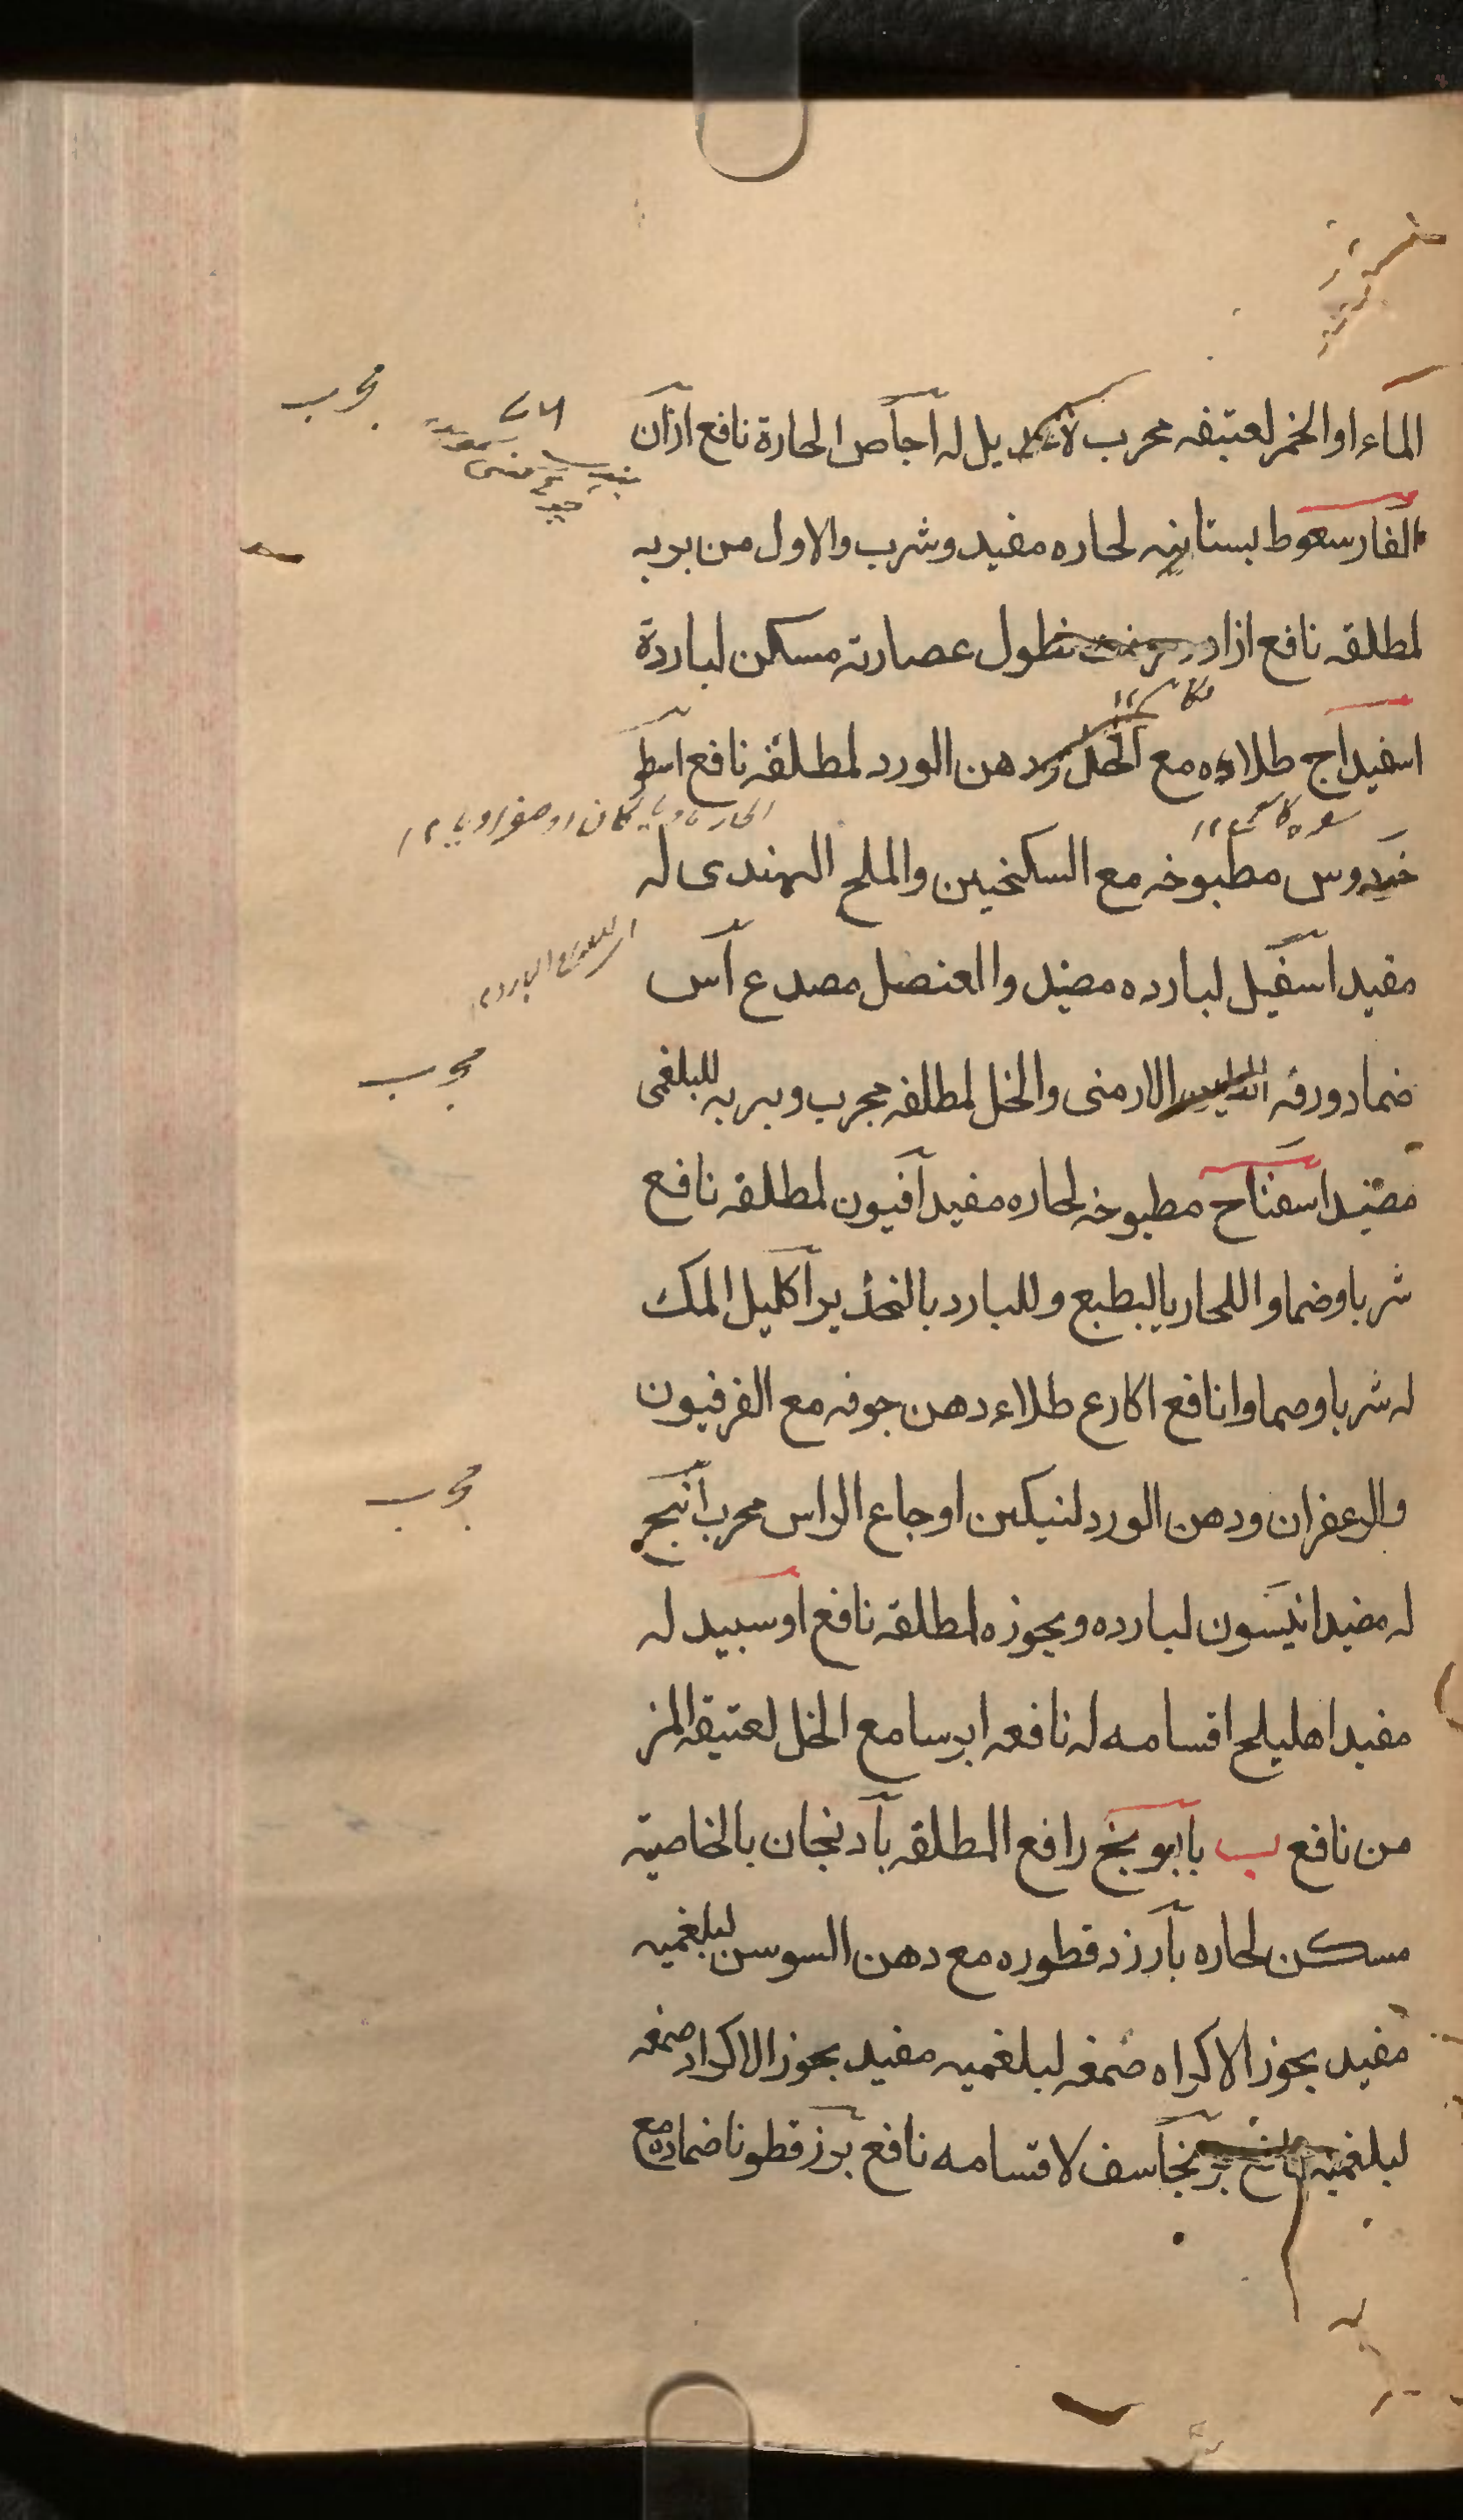 الماء او الخمر لعتيقه مجرب لا يل له اجاص الحارة نافع اذان
الفار سعوط بستانيه لحاره مفيد وشرب والاول من بربه
لمطلقه نافع ازاد نطول عصارته مسكن لباردة
اسفيداج طلاءه مع الخل ودهن الورد لمطلقه نافع اسطو
خدوس مطبوخه مع السكنجبين والملح الهندى له
مفيد اسقيل لبارده مفيد والعنصل مصدع آس
ضماد ورقه الارمنى والخل لمطلقه مجرب وبربه للبلغمى
مفيد اسفناخ مطبوخه لحاره مفيد افيون لمطلقه نافع
شربا وضماوا للحار بالبطبع وللبارد بالتخدير اكليل الملك
له شربا وصماوا نافع اكارع طلاء دهن جوفه مع الفرفيون
والزعفران ودهن الورد لتسكين اوجاع الراس مجرب انبج
له مفيد انيسون لبارده وبجوزه لمطلقه نافع اوسبيد له
مفيد اهليلج اقسامه له نافعه ايرسا مع الخل لعتيقه المز
من نافع ب بابونج رافع المطلقه بادنجان بالخاصيته
مسكن لحاره بارزد قطوره مع دهن السوسن لبلغميه
مفيد بجوز الاكراه صمغه لبلغميه مفيد بجوز الاكراد صمغه
لبلغميه برنجاسف لاقسامه نافع بزرقطونا ضماده مع
مجرب
مجرب
مجرب